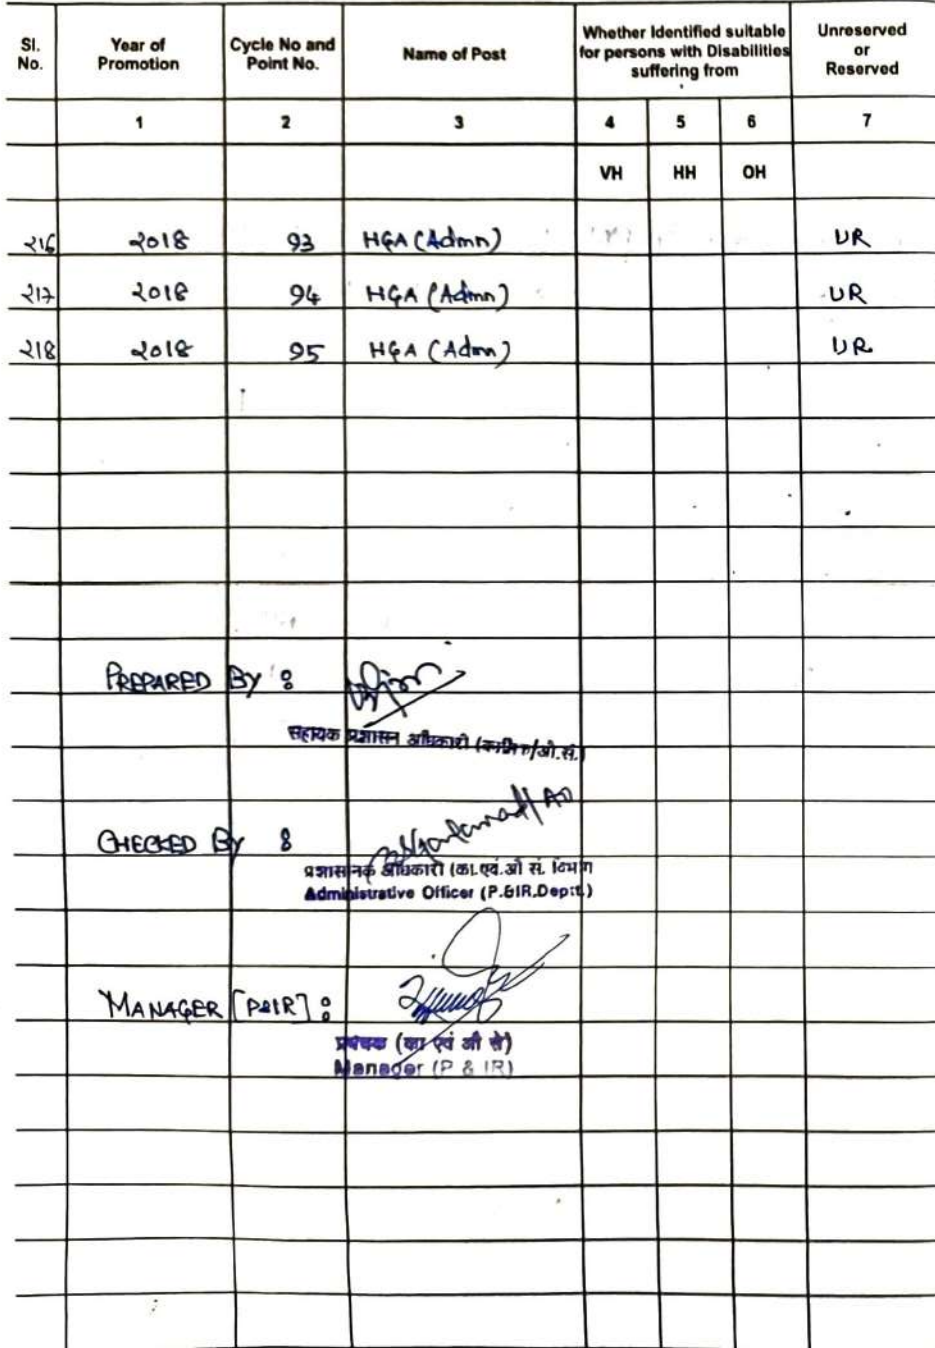 Sl. No. Year of Promotion Cycle No and Point No. Name of Post Whether Identified suitable for persons with Disabilities suffering from Unreserved or Reserved
1 2 3 4 5 6 7
VH HH OH
216 2018 93 HGA (Admn) UR
217 2018 94 HGA (Admn) UR
218 2018 95 HGA (Admn) UR
PREPARED BY :
सहायक प्रशासन अधिकारी (कार्मिक/औ.सं.)
CHECKED By :
प्रशासनिक अधिकारी (का.एवं.औ सं. विभाग
Administrative Officer (P.&IR.Deptt.)
MANAGER [P&IR] :
प्रबंधक (का एवं औ सं)
Manager (P & IR)